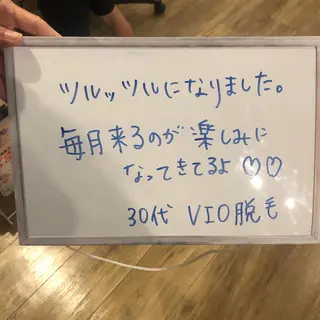 ツルッツルになりました。
毎月来るのが楽しみに
なってきてるよ♡♡
30代 VIO脱毛